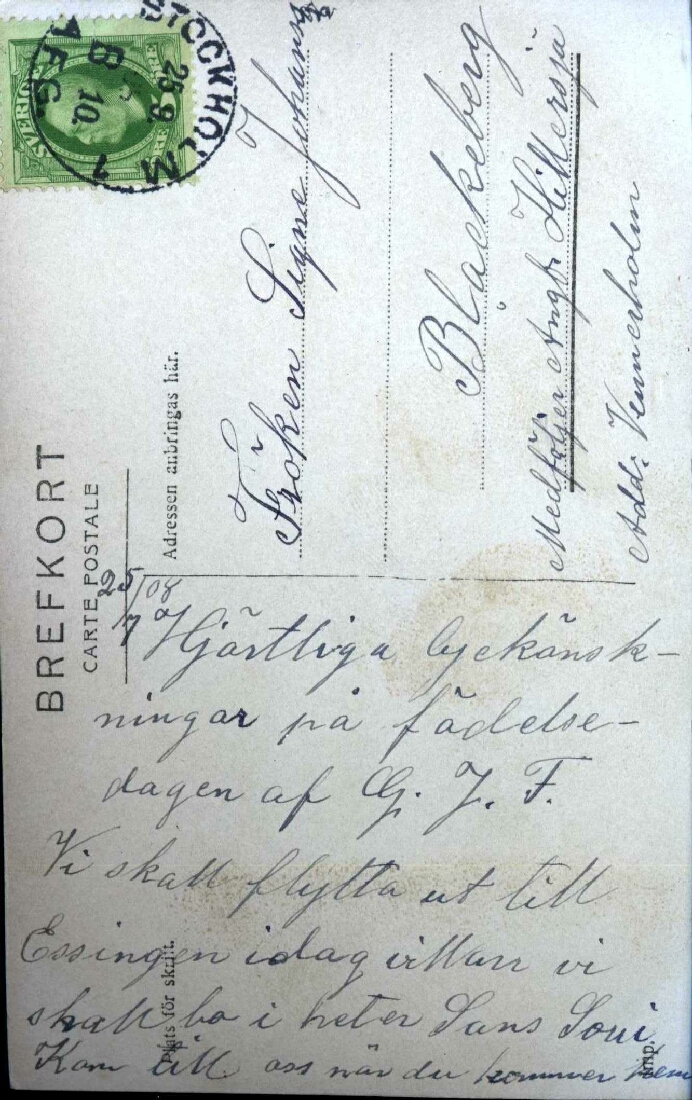 BREFKORT
CARTE POSTALE
Adressen anbringas här.
Plats för skrift.
Imp.
SVERIGE
STOCKHOLM 1
25.9.
10.
8
AFG.
Fröken Signe Johans
Blackeberg
Medföljer Angb. Hillersjö
Add: Vennerholm
25/9 08
Hjärtliga Lyckönsk-
ningar på födelse-
dagen af G. J. F.
Vi skall flytta ut till
Essingen idag villan vi
skall bo i heter Sans Soui
Kom till oss när du kommer hem